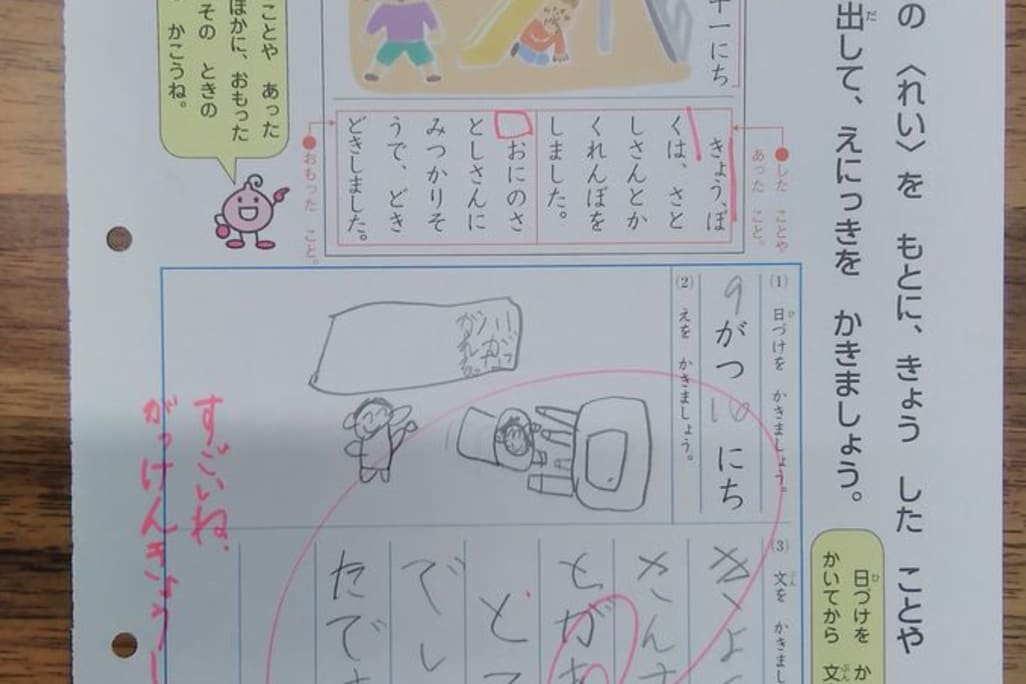 の 〈れい〉を もとに、きょう した ことや
出して、えにっきを かきましょう。
だ
十一にち
した ことや
あった こと。
きょう、ぼ
くは、さと
しさんとか
くれんぼを
しました。
おにのさ
としさんに
みつかりそ
うで、どき
どきしました。
おもった こと。
ことや あった
ほかに、おもった
その ときの
かこうね。
(1) 日づけを かきましょう。
ひ
9がつ 16にち
(2) えを かきましょう。
(3) 文を かきまし
ぶん
きょ
さんさ
とがあ
とて
でし
たです
日づけを か
ひ
かいてから 文
ぶん
すごいね。
がっけんきょうし